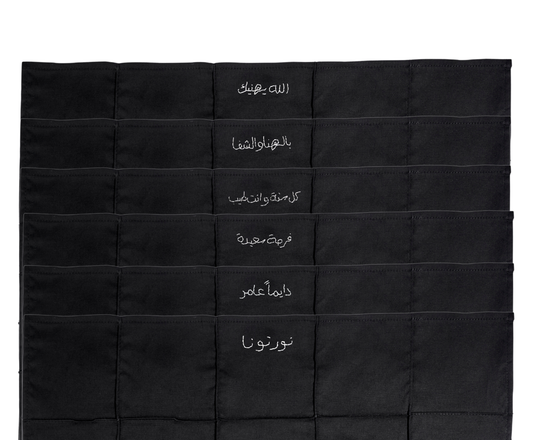 الله يهنيك
بالهنا والشفا
كل سنة وانت طيب
فرحة سعيدة
دايماً عامر
نورتونا